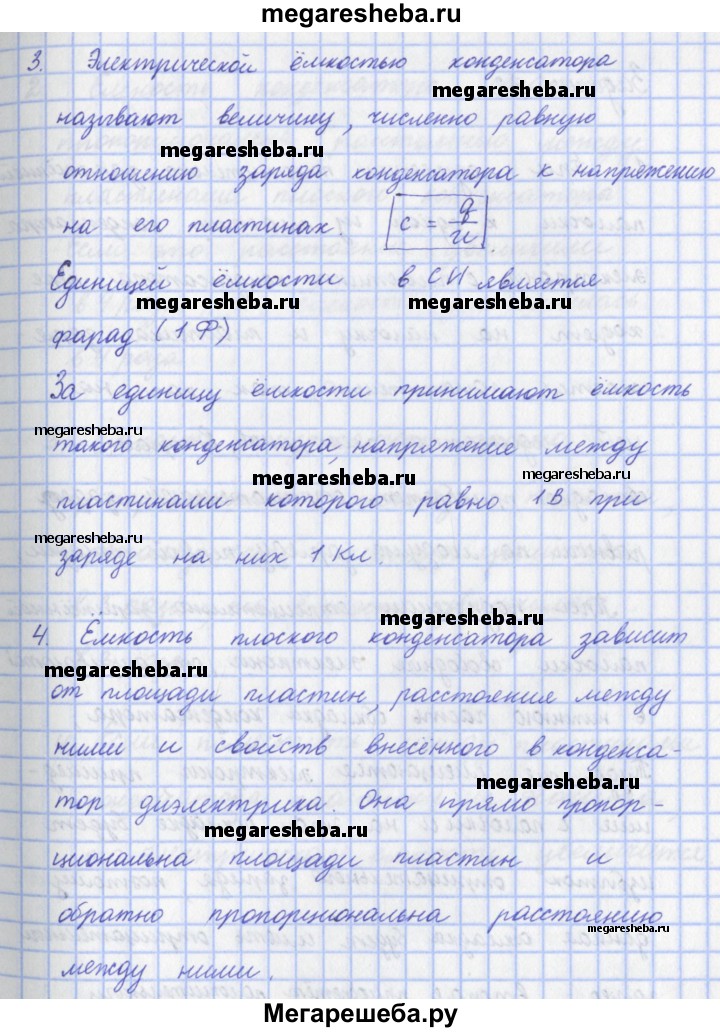 megaresheba.ru
3. Электрической ёмкостью конденсатора
megaresheba.ru
называют величину, численно равную
megaresheba.ru
отношению заряда конденсатора к напряжению
на его пластинах. c = q/u.
Единицей ёмкости в СИ является
megaresheba.ru megaresheba.ru
фарад (1 Ф)
За единицу ёмкости принимают ёмкость
megaresheba.ru
такого конденсатора, напряжение между
megaresheba.ru megaresheba.ru
пластинами которого равно 1 В при
megaresheba.ru
заряде на них 1 Кл.
megaresheba.ru
4. Ёмкость плоского конденсатора зависит
megaresheba.ru
от площади пластин, расстояния между
ними и свойств внесённого в конденса-
megaresheba.ru
тор диэлектрика. Она прямо пропор-
megaresheba.ru
циональна площади пластин и
обратно пропорциональна расстоянию
megaresheba.ru
между ними.
Мегарешеба.ру